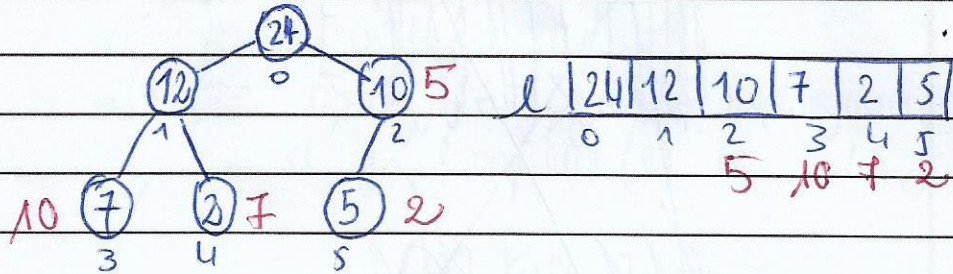 24
0
12 10 5
1 2
10 7 2 7 5 2
3 4 5
l |24|12|10|7|2|5|
0 1 2 3 4 5
5 10 7 2